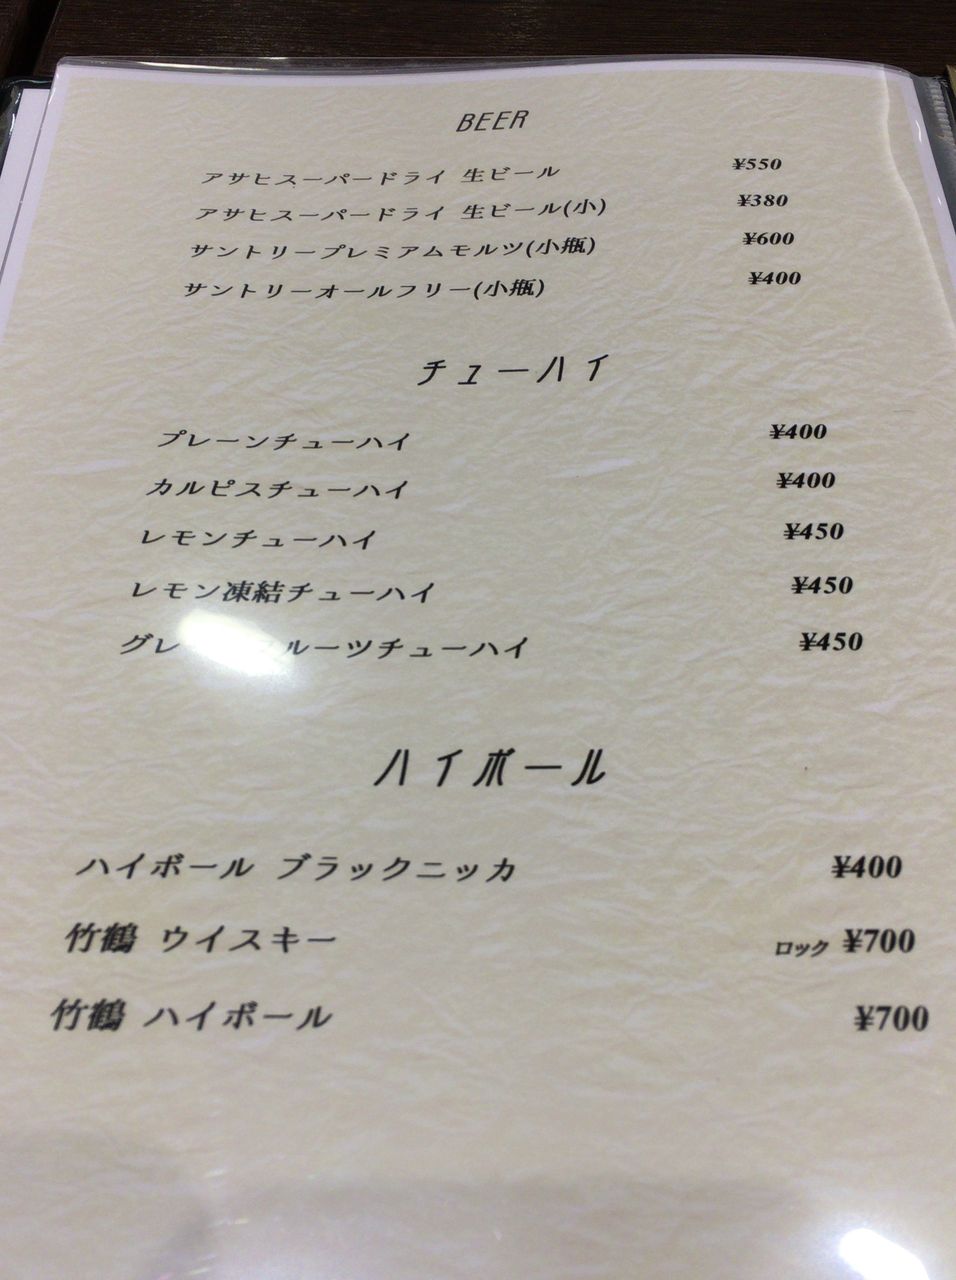 BEER
アサヒスーパードライ 生ビール ¥550
アサヒスーパードライ 生ビール(小) ¥380
サントリープレミアムモルツ(小瓶) ¥600
サントリーオールフリー(小瓶) ¥400
チューハイ
プレーンチューハイ ¥400
カルピスチューハイ ¥400
レモンチューハイ ¥450
レモン凍結チューハイ ¥450
グレープフルーツチューハイ ¥450
ハイボール
ハイボール ブラックニッカ ¥400
竹鶴 ウイスキー ロック ¥700
竹鶴 ハイボール ¥700